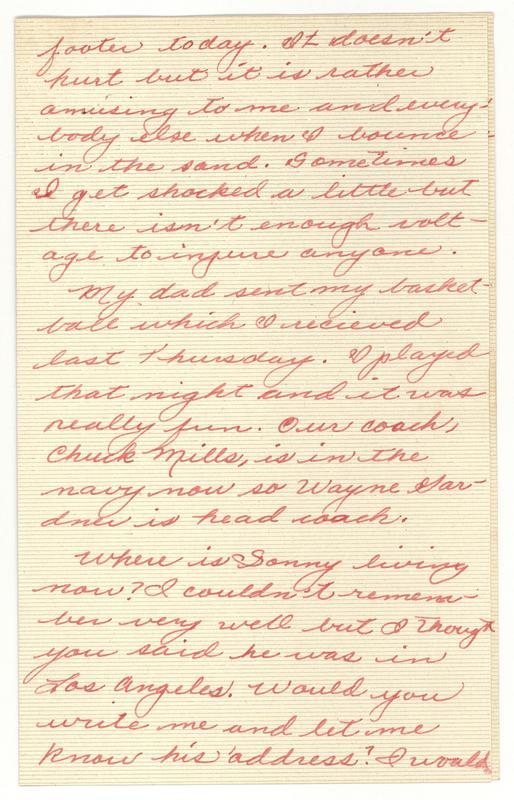 footer today. It doesn't
hurt but it is rather
amusing to me and every-
body else when I bounce
in the sand. Sometimes
I get shocked a little but
there isn't enough volt-
age to injure anyone.
My dad sent my basket-
ball which I recieved
last Thursday. I played
that night and it was
really fun. Our coach,
Chuck Mills, is in the
navy now so Wayne Gar-
dner is head coach.
Where is Sonny living
now? I couldn't remem-
ber very well but I though
you said he was in
Los Angeles. Would you
write me and let me
know his address? I would